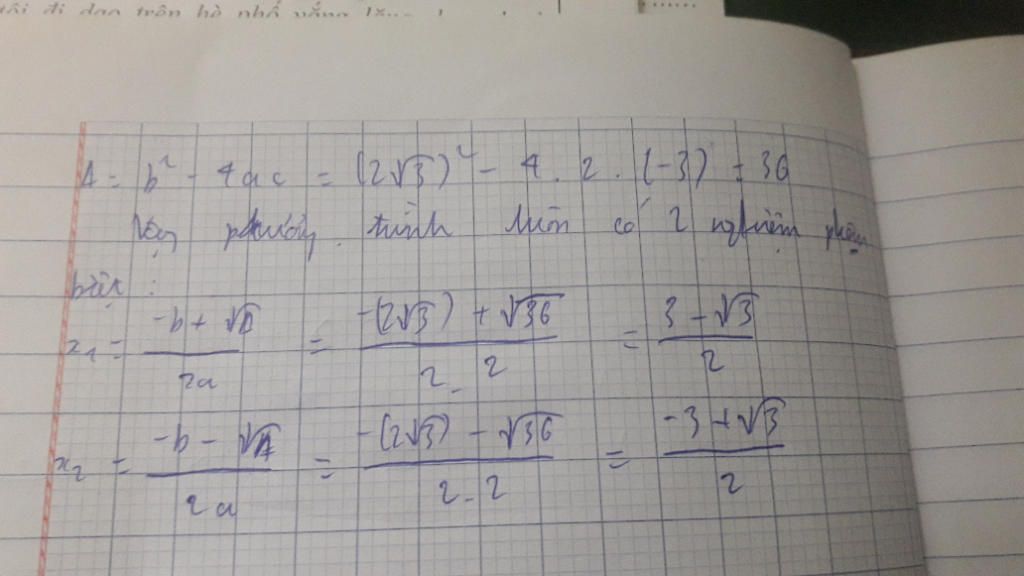 tôi đi dạo trên hè phố vắng
Δ = b² - 4ac = (2√3)² - 4 . 2 . (-3) = 36
Vậy phương trình luôn có 2 nghiệm phân
biệt :
x₁ = (-b + √Δ)/(2a) = (-(2√3) + √36)/(2 . 2) = (3 - √3)/2
x₂ = (-b - √Δ)/(2a) = (-(2√3) - √36)/(2 . 2) = (-3 + √3)/2